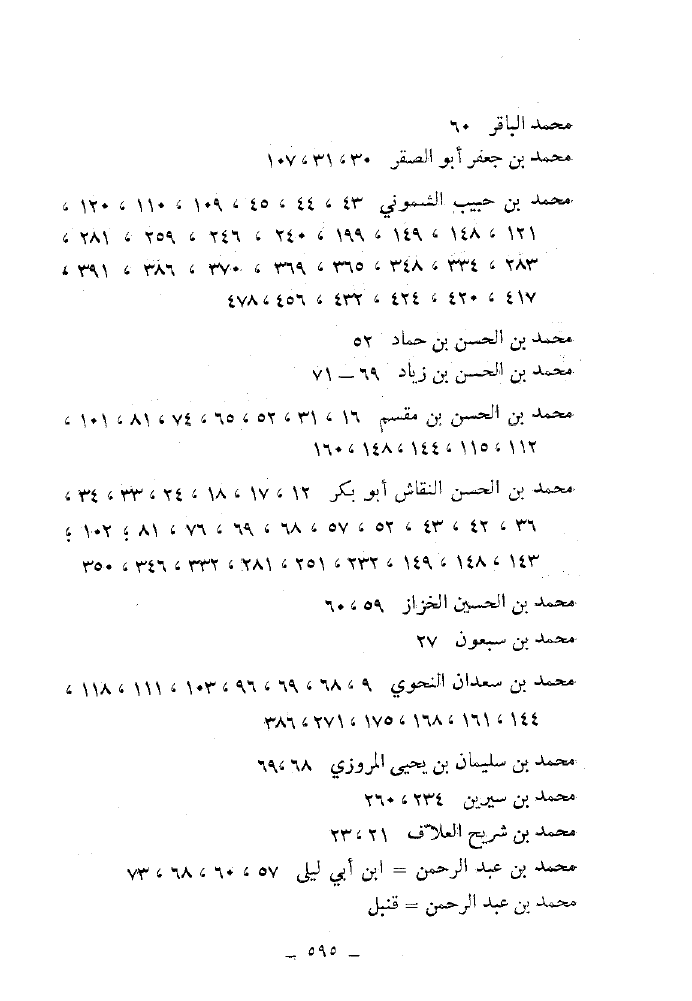 محمد الباقر ٦٠
محمد بن جعفر أبو الصقر ٣٠ ، ٣١ ، ١٠٧
محمد بن حبيب الشموني ٤٣ ، ٤٤ ، ٤٥ ، ١٠٩ ، ١١٠ ، ١٢٠ ،
١٢١ ، ١٤٨ ، ١٤٩ ، ١٩٩ ، ٢٤٠ ، ٢٤٦ ، ٢٥٩ ، ٢٨١ ،
٢٨٣ ، ٣٣٤ ، ٣٤٨ ، ٣٦٥ ، ٣٦٩ ، ٣٧٠ ، ٣٨٦ ، ٣٩١ ،
٤١٧ ، ٤٢٠ ، ٤٢٤ ، ٤٣٢ ، ٤٥٦ ، ٤٧٨
محمد بن الحسن بن حماد ٥٢
محمد بن الحسن بن زياد ٦٩ – ٧١
محمد بن الحسن بن مقسم ١٦ ، ٣١ ، ٥٢ ، ٦٥ ، ٧٤ ، ٨١ ، ١٠١ ،
١١٢ ، ١١٥ ، ١٤٤ ، ١٤٨ ، ١٦٠
محمد بن الحسن النقاش أبو بكر ١٢ ، ١٧ ، ١٨ ، ٢٤ ، ٣٣ ، ٣٤ ،
٣٦ ، ٤٢ ، ٤٣ ، ٥٢ ، ٥٧ ، ٦٨ ، ٦٩ ، ٧٦ ، ٨١ ؛ ١٠٢ ؛
١٤٣ ، ١٤٨ ، ١٤٩ ، ٢٣٢ ، ٢٥١ ، ٢٨١ ، ٣٣٢ ، ٣٤٦ ، ٣٥٠
محمد بن الحسين الخزاز ٥٩ ، ٦٠
محمد بن سبعون ٢٧
محمد بن سعدان النحوي ٩ ، ٦٨ ، ٦٩ ، ٩٦ ، ١٠٣ ، ١١١ ، ١١٨ ،
١٤٤ ، ١٦١ ، ١٦٨ ، ١٧٥ ، ٢٧١ ، ٣٨٦
محمد بن سليمان بن يحيى المروزي ٦٨ ، ٦٩
محمد بن سيرين ٢٣٤ ، ٢٦٠
محمد بن شريح العلاّف ٢١ ، ٢٣
محمد بن عبد الرحمن = ابن أبي ليلى ٥٧ ، ٦٠ ، ٦٨ ، ٧٣
محمد بن عبد الرحمن = قنبل
– ٥٩٥ –